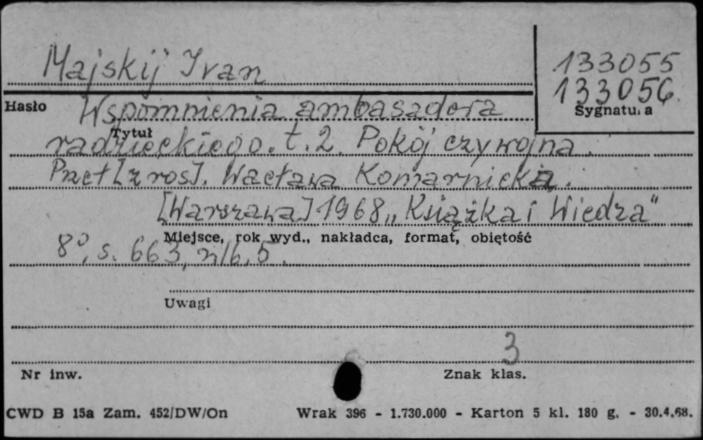 Majskij Ivan
133055
133056
Sygnatura
Hasło
Wspomnienia ambasadora
Tytuł
radzieckiego. t. 2. Pokój czy wojna.
Przet [z ros]. Wacława Komarnicka.
[Warszawa] 1968 „Książka i Wiedza"
Miejsce, rok wyd., nakładca, format, objętość
8°, s. 663, nlb, 5.
Uwagi
3
Nr inw.
Znak klas.
CWD B 15a Zam. 452/DW/On Wrak 396 - 1.730.000 - Karton 5 kl. 180 g. - 30.4.68.